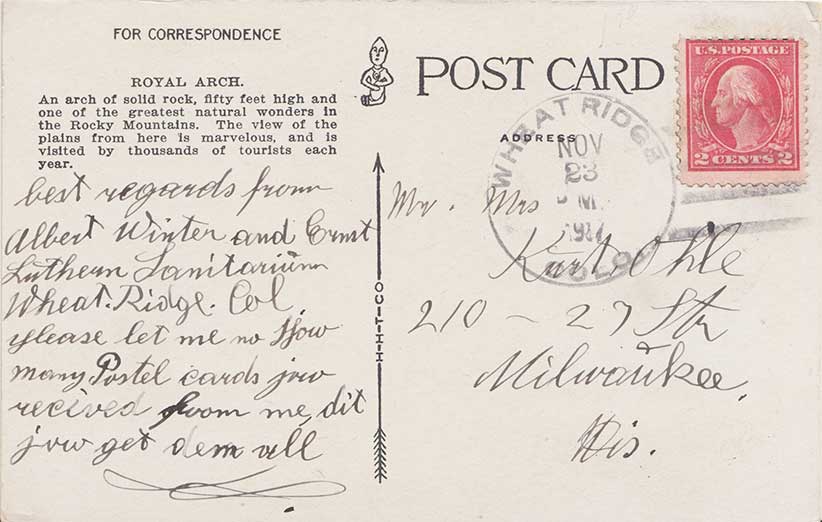 FOR CORRESPONDENCE
ROYAL ARCH.
An arch of solid rock, fifty feet high and
one of the greatest natural wonders in
the Rocky Mountains. The view of the
plains from here is marvelous, and is
visited by thousands of tourists each
year.
best regards from
Albert Winter and Ernst
Luthern Sanitarium
Wheat. Ridge. Col
please let me no How
many Postel cards jow
recived from me, dit
jow get dem all
H-H-T-CO
POST CARD
ADDRESS
WHEAT RIDGE
NOV
23
COLO.
U.S. POSTAGE
2 CENTS 2
Mr. Mrs
Kurt Ohle
210 - 27 Str
Milwaukee,
Wis.